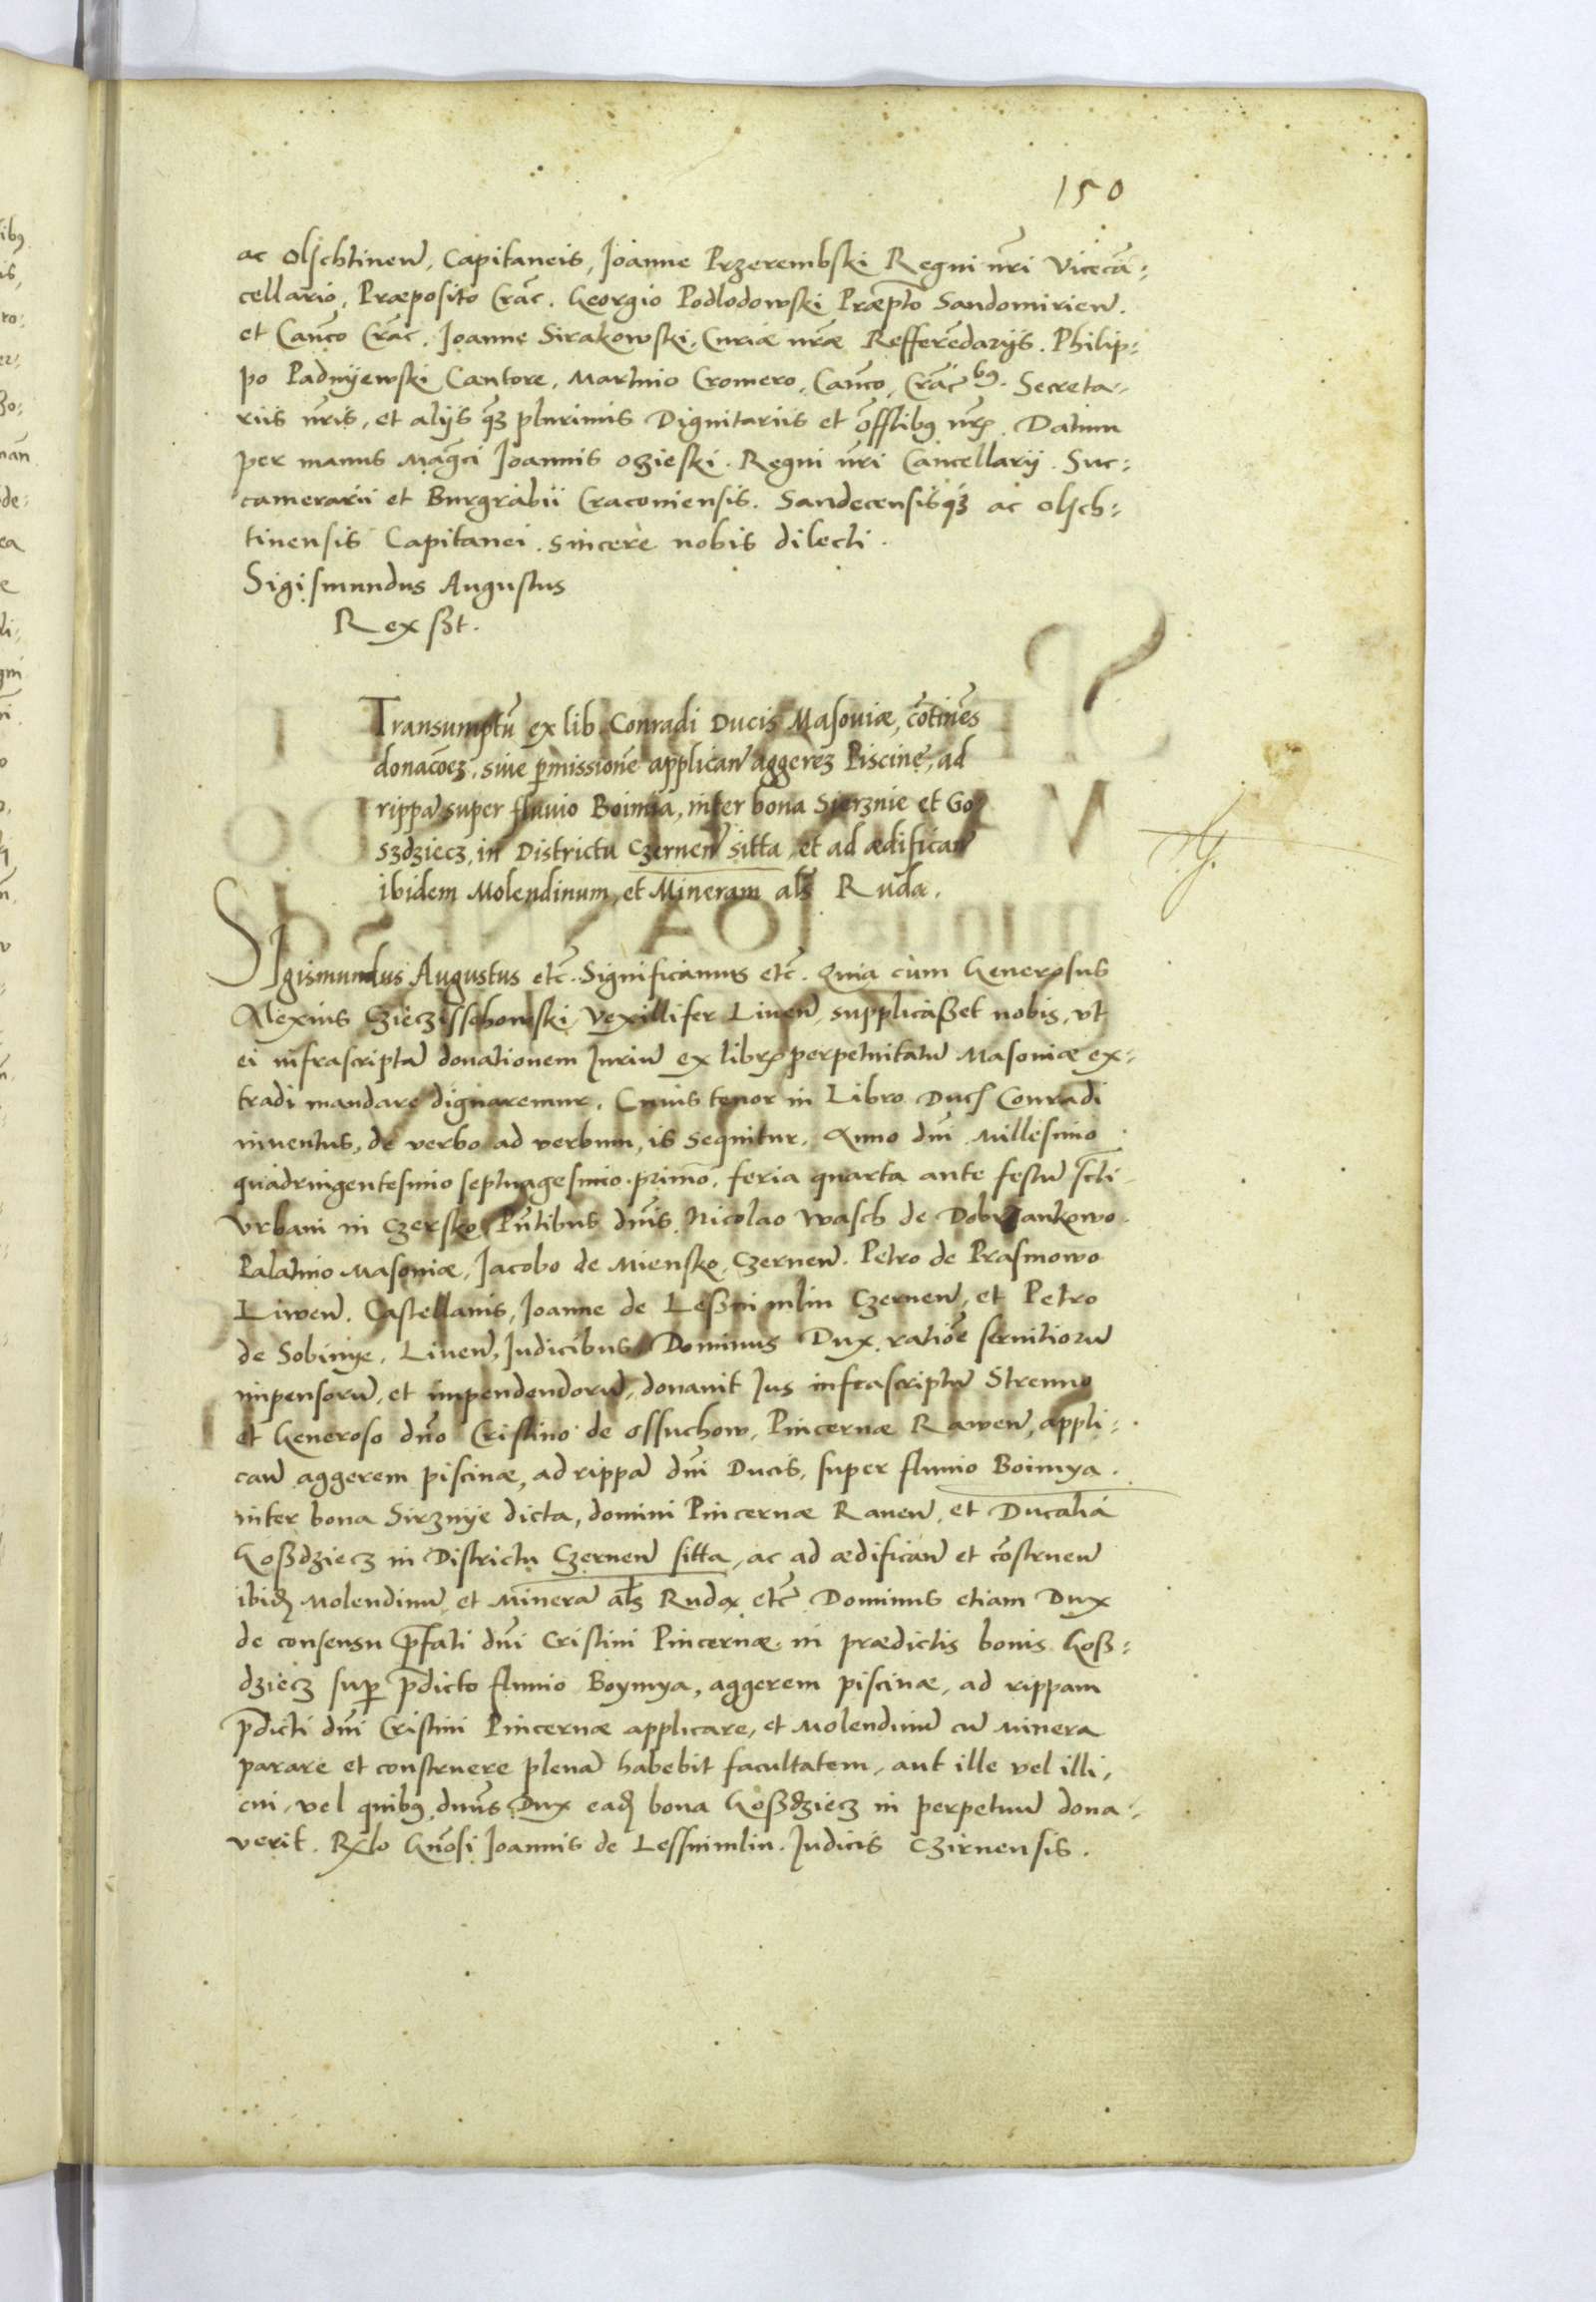 150
ac Olschtinen̄, Capitaneis, Joanne Przerembski Regni nr̄i Vicecā:
cellario, Præposito Crac̄. Georgio Podlodowski Præpt̄o Sandomirien̄.
et Can̄co Crac̄. Joanne Sirakowski, Curiæ nr̄æ Refferēdarijs. Philip:
po Padnijewski Cantore, Martino Cromero, Can̄co, Crac̄bꝰ. Secreta:
riis nr̄is, et alijs qꝫ plurimis Dignitariis et offl̄ibꝰ nr̄ꝭ. Datum
per manus Magc̄i Joannis Oczieski. Regni nr̄i Cancellarij. Suc:
camerarii et Burgrabii Cracoviensis. Sandecensisqꝫ ac Olsch:
tinensis Capitanei. sincere nobis dilecti.
Sigismundus Augustus
Rex sßt.
Transumptū ex lib. Conradi Ducis Masoviæ, cōtinēs
donacōeꝫ, sive p̱missionē applican̄ aggereꝫ Piscinę, ad
rippā super fluvio Boimia, inter bona Sierznie et Go
szdziecz, in Districtu Czernen̄ sitta, et ad ædifican̄
ibidem Molendinum, et Mineram al̄s Ruda.
SIgismundus Augustus etc̄. Significamus etc̄. Quia cùm Generosus
Alexius Cziecziſſchowski, Vexillifer Liven̄, supplicaßet nobis, vt
ei infrascriptā donationem Juriū ex librꝭ perpetuitatū Masoviæ ex:
tradi mandare dignaremur. Cuius tenor in Libro Ducꝭ Conradi
inventus, de verbo ad verbum, is sequitur. Anno dn̄i Millesimo
quadringentesimo septuagesimo primo, feria quarta ante festū sct̄i
Vrbani in Czersko, Pn̄tibus dn̄is, Nicolao Wasch de Dobrzankowo
Palatino Masoviæ, Jacobo de Miensko, Czernen̄. Petro de Prasmowo
Liwen̄. Castellanis, Joanne de Leßnimlin Czernen̄, et Petro
de Sobinye, Liven̄, Judicibus. Dominus Dux, ratiōe servitiorū
impensorū, et impendendorū, donavit Jus infrascriptū Strenuo
et Generoso dn̄o Cristino de Ossuchow, Pincernæ Rawen̄, appli:
can̄ aggerem piscinæ, ad rippā dn̄i Ducis, super fluvio Boimya.
inter bona Sirznije dicta, domini Pincernæ Raven̄, et Ducalia
Goßdziecz in Districtu Czernen̄ sitta, ac ad ædifican̄ et cōstruen̄
ibidꝫ Molendinū et Minerā al̄s Rudæ etc̄ Dominus etiam Dux
de consensu p̄fati dn̄i Cristini Pincernæ. in prædictis bonis Goß:
dziecz sup̱ p̄dicto fluvio Boymya, aggerem piscinæ, ad rippam
p̄dicti dn̄i Cristini Pincernæ applicare, et Molendinū cū Minera
parare et construere plenā habebit facultatem, aut ille vel illi,
cui, vel quibꝰ, dn̄us Dux eadꝫ bona Goßdziecz in perpetuū dona:
verit. Rl̄o Gn̄osi Joannis de Lessnimlin. Judicis Czirnensis.